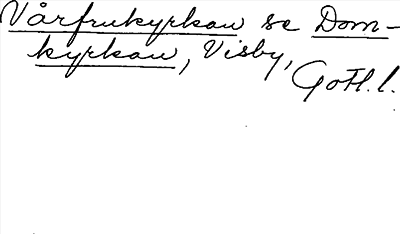 Vårfrukyrkan se Dom-
kyrkan, Visby,
Gotl. l.